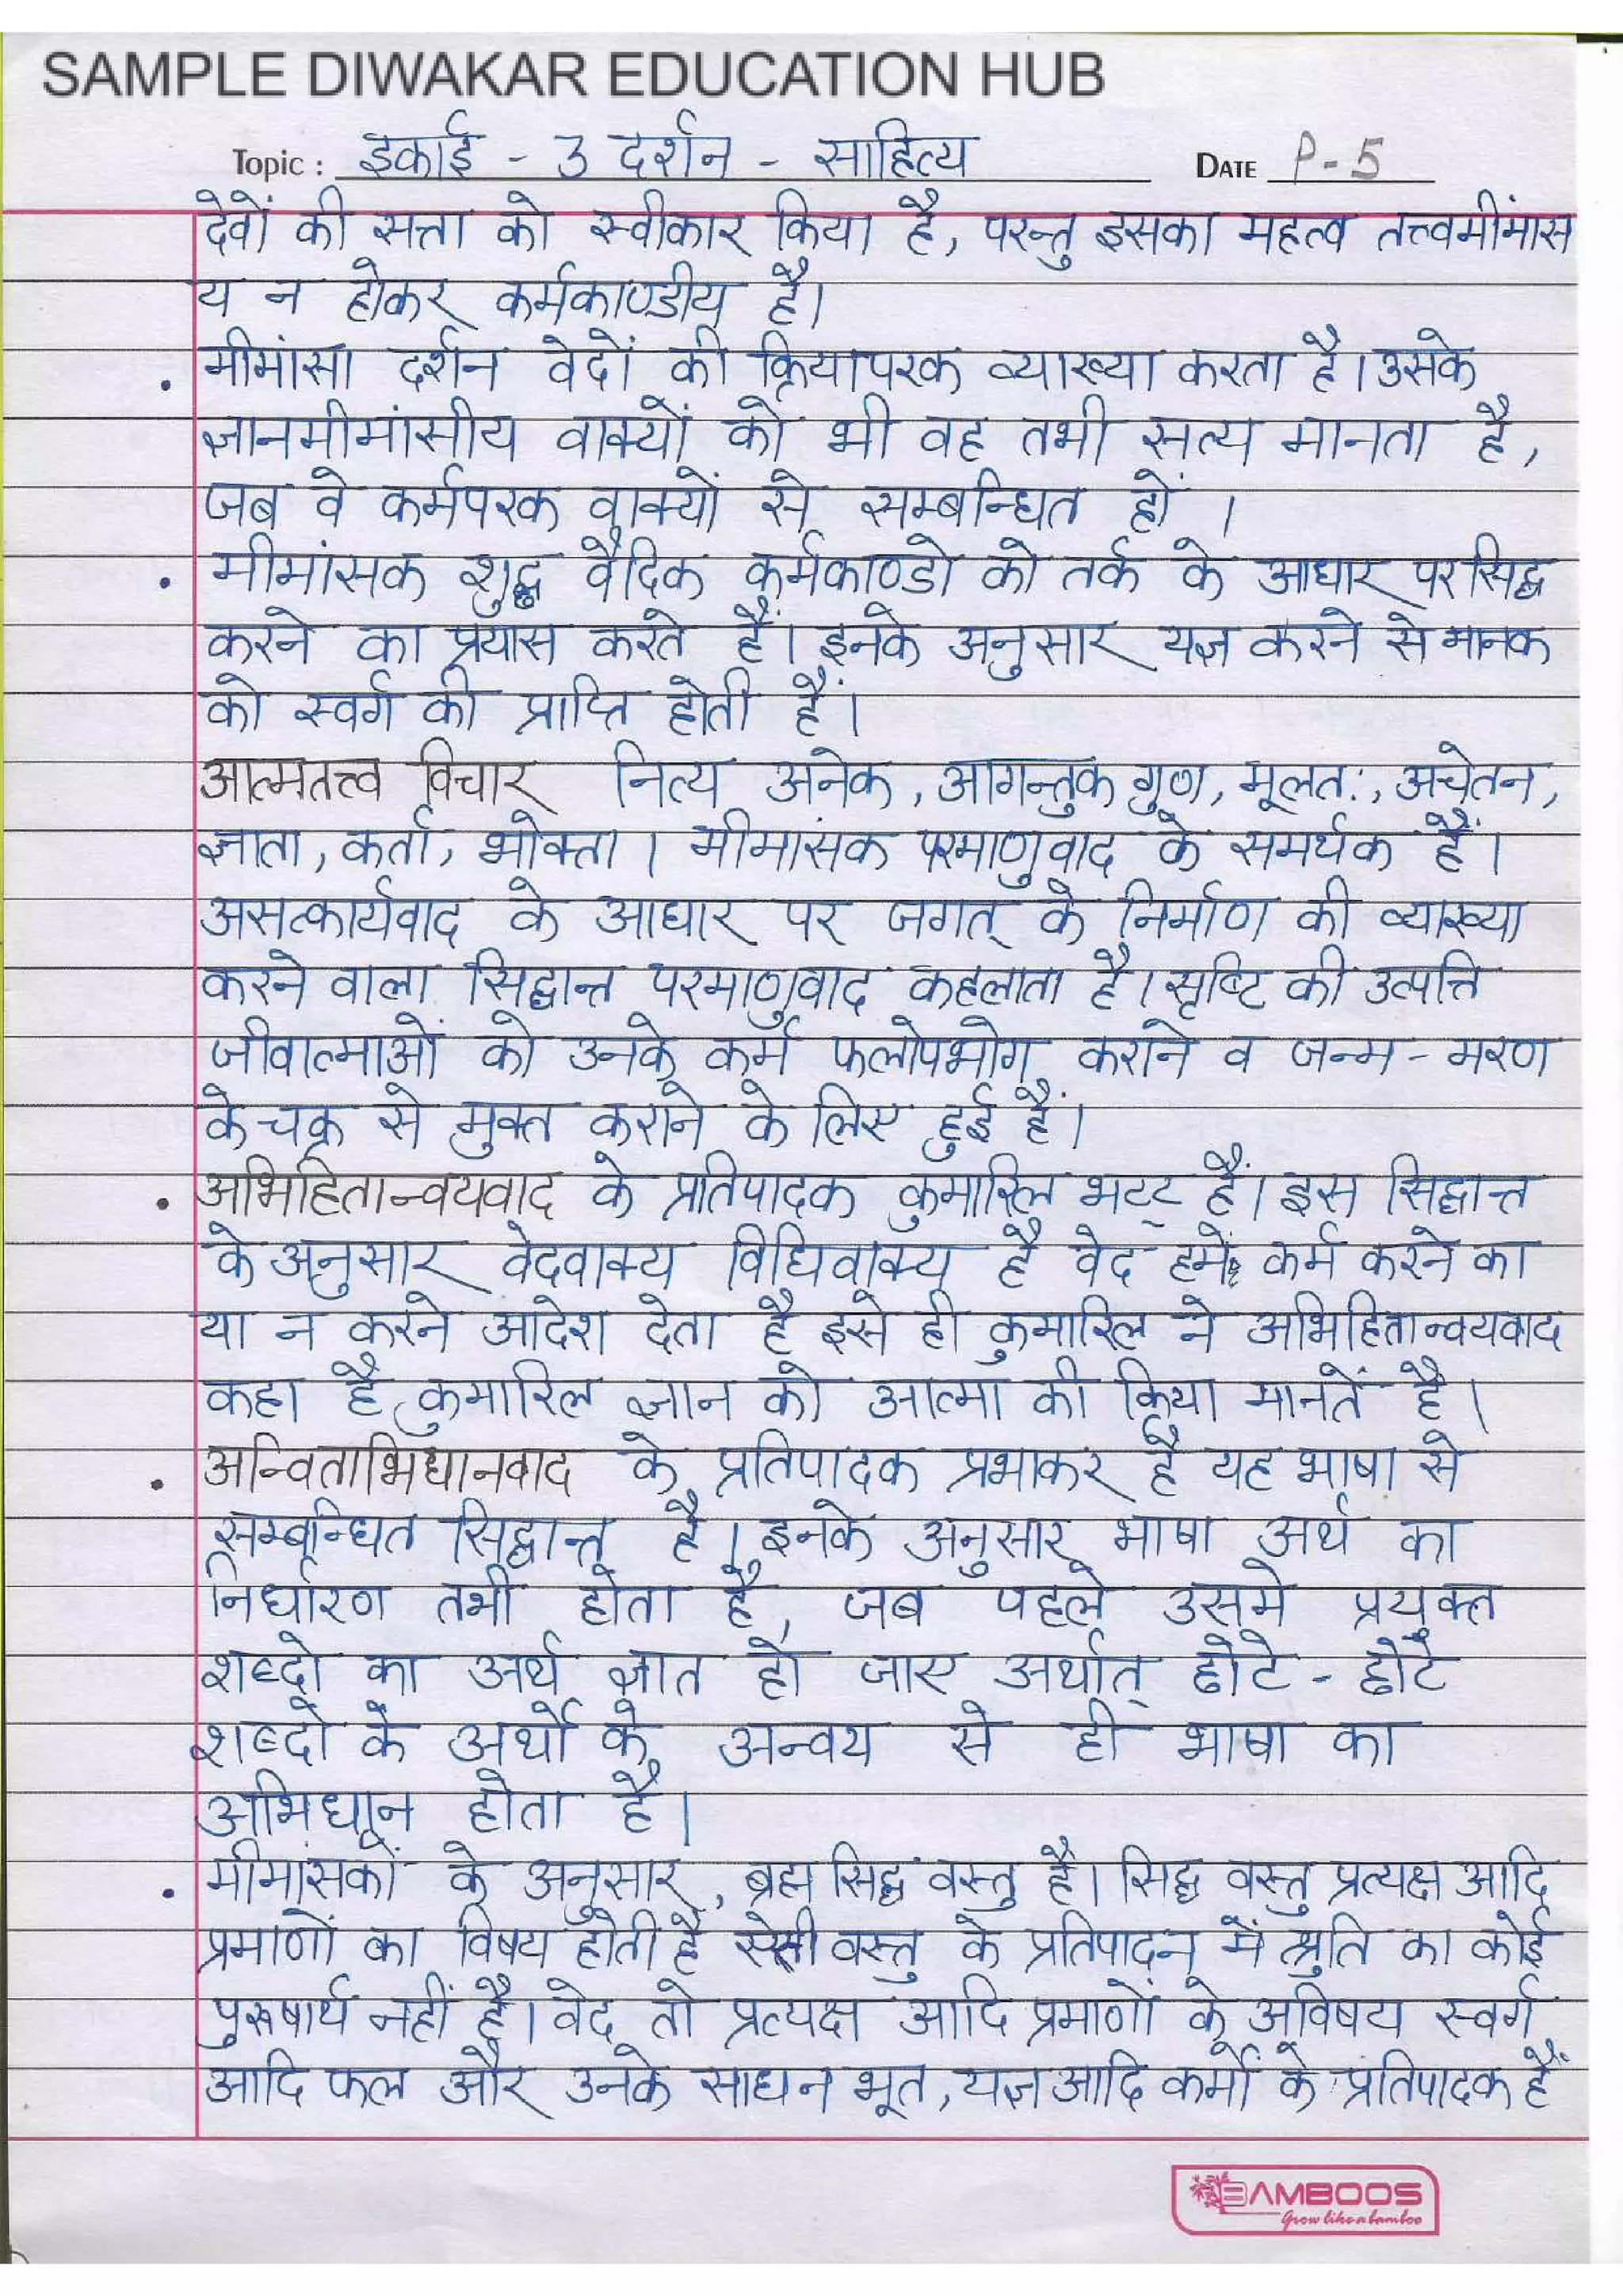 SAMPLE DIWAKAR EDUCATION HUB
Topic : इकाई - 3 दर्शन - साहित्य DATE P-5
देवों की सत्ता को स्वीकार किया है, परन्तु इसका महत्व तत्त्वमीमांस
य न होकर कर्मकाण्डीय है।
• मीमांसा दर्शन वेदों की क्रियापरक व्याख्या करता है। उसके
ज्ञानमीमांसीय वाक्यों को भी वह तभी सत्य मानता है,
जब वे कर्मपरक वाक्यों से सम्बन्धित हों ।
• मीमांसक शुद्ध वैदिक कर्मकाण्डो को तर्क के आधार पर सिद्ध
करने का प्रयास करते हैं। इनके अनुसार यज्ञ करने से मानक
को स्वर्ग की प्राप्ति होती हैं।
आत्मतत्त्व विचार नित्य अनेक, आगन्तुक गुण, मूलत:, अचेतन,
ज्ञाता, कर्ता, भोक्ता । मीमांसक परमाणुवाद के समर्थक हैं।
असत्कार्यवाद के आधार पर जगत् के निर्माण की व्याख्या
करने वाला सिद्धान्त परमाणुवाद कहलाता है। सृष्टि की उत्पत्ति
जीवात्माओं को उनके कर्म फलोपभोग कराने व जन्म - मरण
के चक्र से मुक्त कराने के लिए हुई हैं।
• अभिहितान्वयवाद के प्रतिपादक कुमारिल भट्ट हैं। इस सिद्धान्त
के अनुसार वेदवाक्य विधिवाक्य है वेद हमें कर्म करने का
या न करने आदेश देता है इसे ही कुमारिल ने अभिहितान्वयवाद
कहा है, कुमारिल ज्ञान को आत्मा की क्रिया मानतें है।
• अन्विताभिधानवाद के प्रतिपादक प्रभाकर है यह भाषा से
सम्बन्धित सिद्धान्त है। इनके अनुसार भाषा अर्थ का
निर्धारण तभी होता है, जब पहले उसमे प्रयुक्त
शब्दो का अर्थ ज्ञात हो जाए अर्थात् छोटे - छोटे
शब्दो के अर्थो के अन्वय से ही भाषा का
अभिधान होता है।
• मीमांसकों के अनुसार, ब्रह्म सिद्ध वस्तु है। सिद्ध वस्तु प्रत्यक्ष आदि
प्रमाणों का विषय होती है वस्तु के प्रतिपादन में श्रुति का कोई
पुरूषार्थ नहीं है। वेद तो प्रत्यक्ष आदि प्रमाणों के अविषय स्वर्ग
आदि फल और उनके साधन भूत, यज्ञ आदि कर्मों के प्रतिपादक हैं
BAMBOOS
Grow like a bamboo